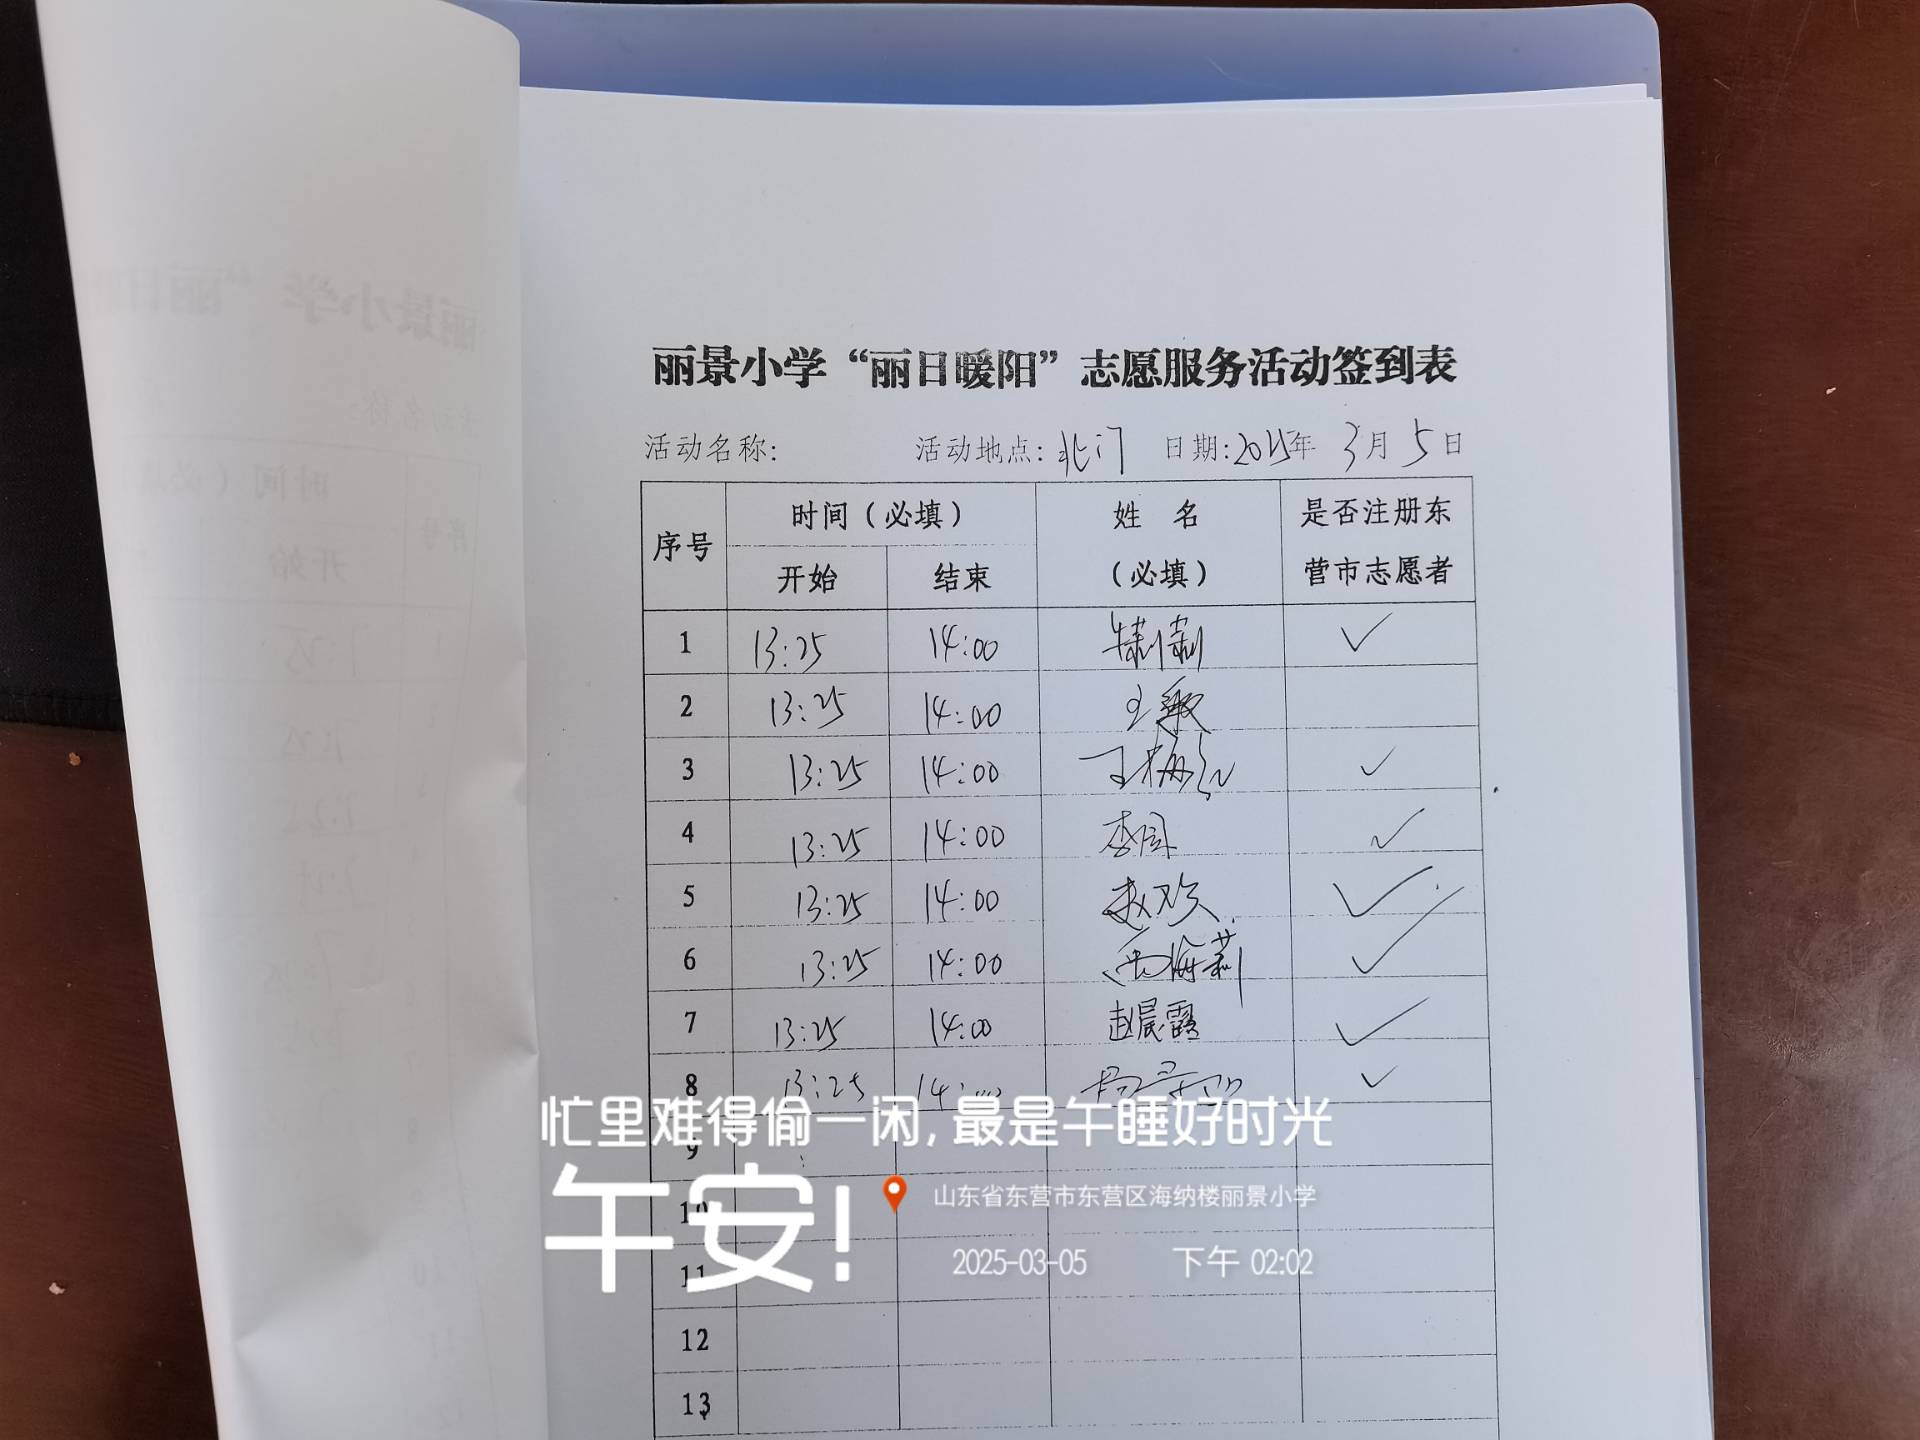 丽景小学“丽日暖阳”志愿服务活动签到表
活动名称: 活动地点: 北门 日期:2025年 3月 5日
序号 时间（必填） 姓 名（必填） 是否注册东营市志愿者
开始 结束
1 13:25 14:00 ✓
2 13:25 14:00 王敏
3 13:25 14:00 王梅 ✓
4 13:25 14:00 李 ✓
5 13:25 14:00 赵欢 ✓
6 13:25 14:00 海莉 ✓
7 13:25 14:00 赵晨露 ✓
8 13:25 14:00 ✓
忙里难得偷一闲,最是午睡好时光
9
午安!
山东省东营市东营区海纳楼丽景小学
10
2025-03-05 下午 02:02
11
12
13